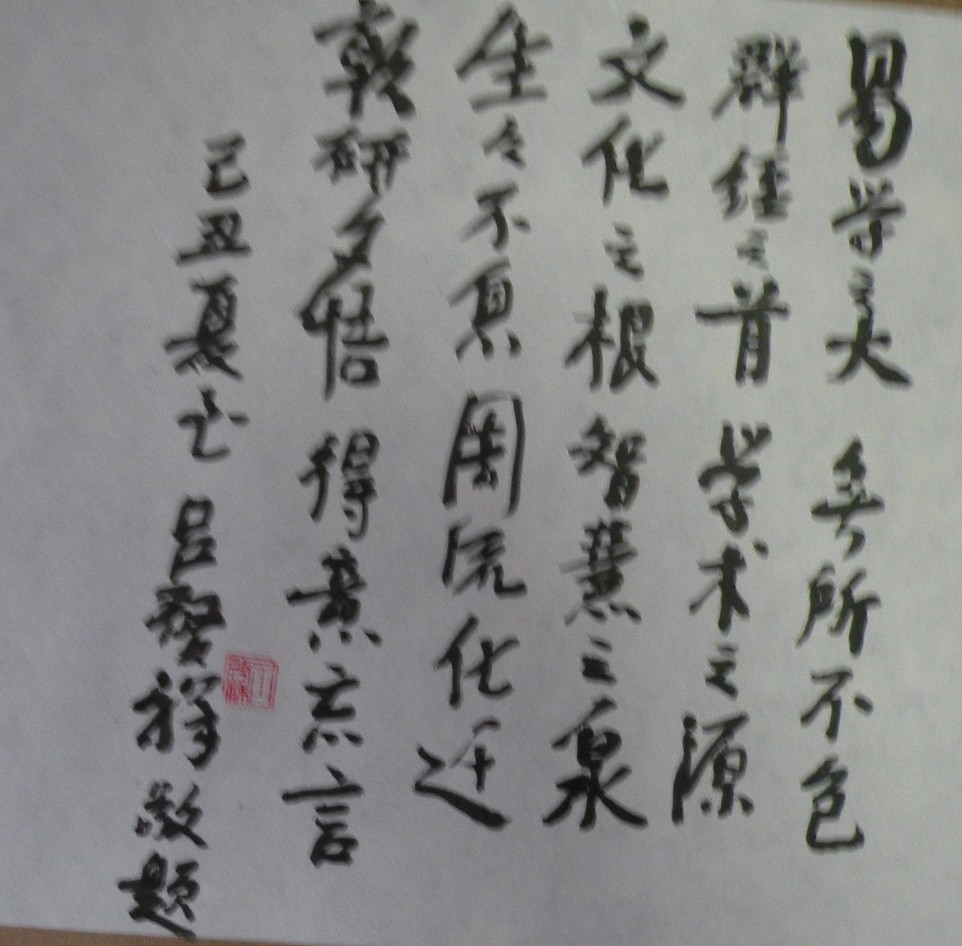 易学之大 無所不包
群經之首 学术之源
文化之根 智慧之泉
生々不息 周流化迁
朝研夕悟 得意忘言
己丑夏至 吕發祥敬题